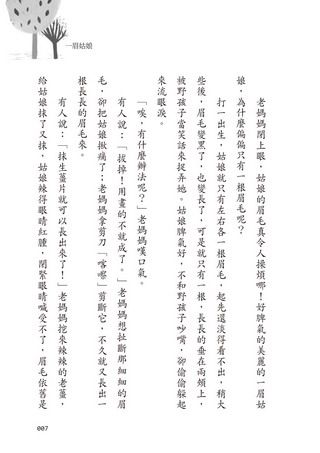 一眉姑娘
老媽媽閉上眼，姑娘的眉毛真令人操煩哪！好脾氣的美麗的一眉姑
娘，為什麼偏偏只有一根眉毛呢？
打一出生，姑娘就只有左右各一根眉毛，起先還淡得看不出，稍大
些後，眉毛變黑了，也變長了，可是就只有一根，長長的垂在兩頰上，
被野孩子當笑話來捉弄她。姑娘脾氣好，不和野孩子吵嘴，卻偷偷躲起
來流眼淚。
「唉，有什麼辦法呢？」老媽媽嘆口氣。
有人說：「拔掉！用畫的不就成了。」老媽媽想扯斷那細細的眉
毛，卻把姑娘揪痛了；老媽媽拿剪刀「喀嚓」剪斷它，不久就又長出一
根長長的眉毛來。
有人說：「抹生薑片就可以長出來了！」老媽媽挖來辣辣的老薑，
給姑娘抹了又抹，姑娘辣得眼睛紅腫，閉緊眼睛喊受不了，眉毛依舊是
007